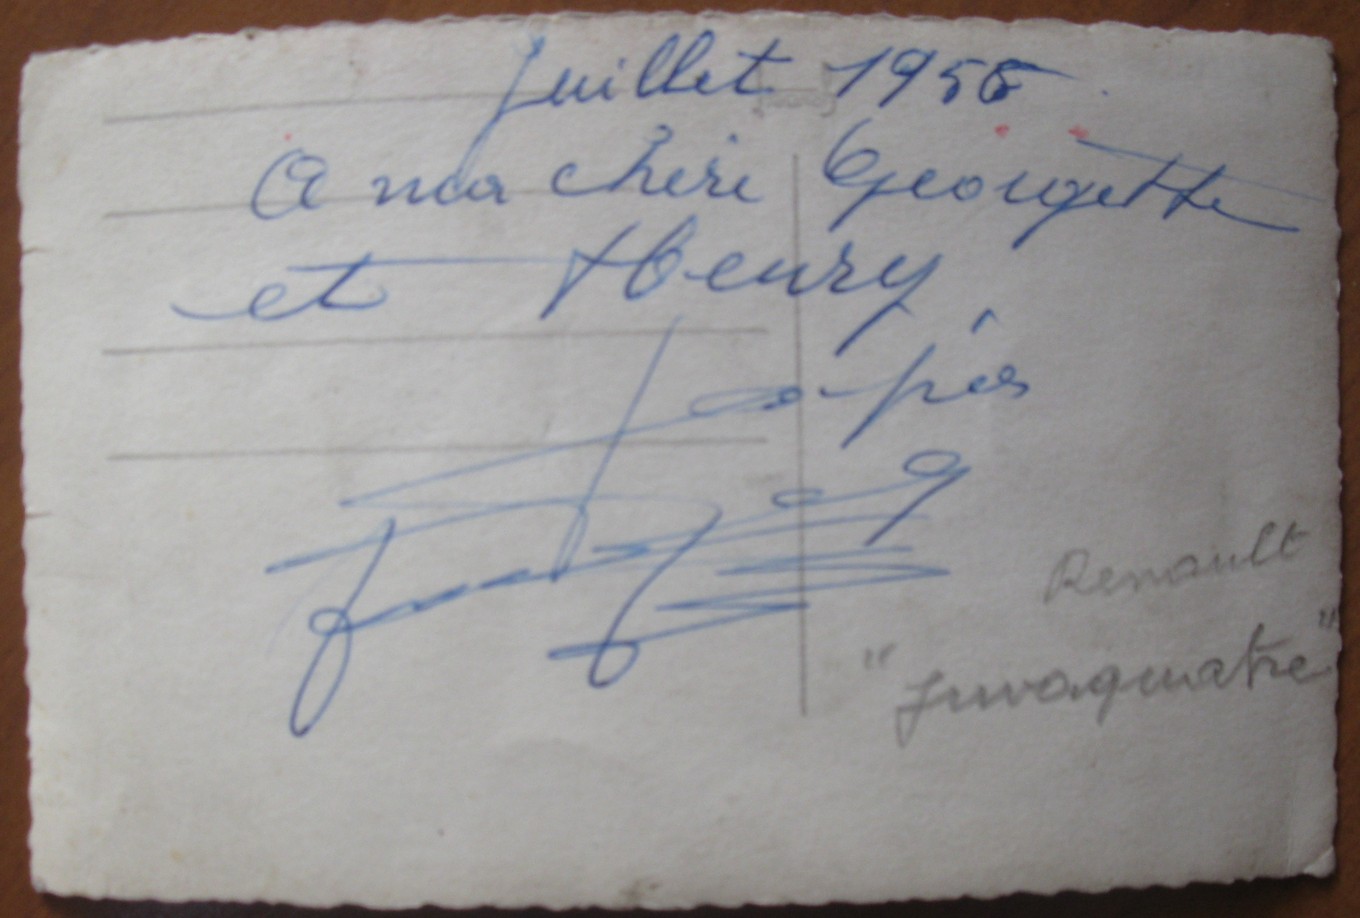 Juillet 1955
A ma chéri Georgette
et Henry
Renault
"Juvaquatre"